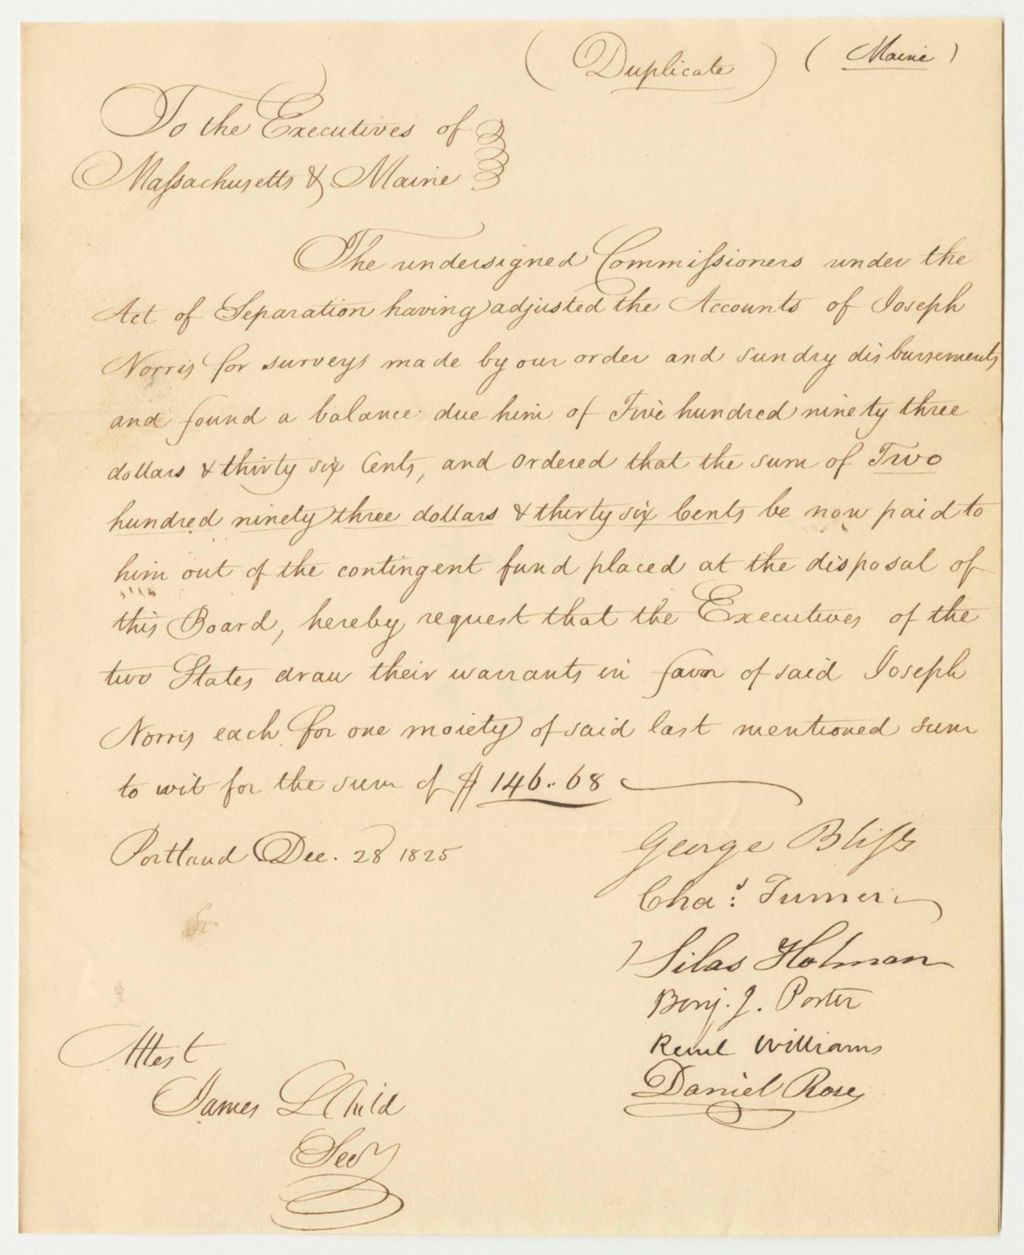 ( Duplicate ) ( Maine )
To the Executives of
Massachusetts & Maine
The undersigned Commissioners under the
Act of Separation having adjusted the Accounts of Joseph
Norris for surveys made by our order and sundry disbursements
and found a balance due him of Five hundred ninety three
dollars & thirty six Cents, and ordered that the sum of Two
hundred ninety three dollars & thirty six Cents be now paid to
him out of the contingent fund placed at the disposal of
this Board, hereby request that the Executives of the
two States draw their warrants in favor of said Joseph
Norris each for one moiety of said last mentioned sum
to wit for the sum of $ 146..68
Portland Dec. 28 1825
George Bliss
Chas: Turner
Silas Holman
Benj. J. Porter
Reuel Williams
Daniel Rose
Attest
James L Child
Secy